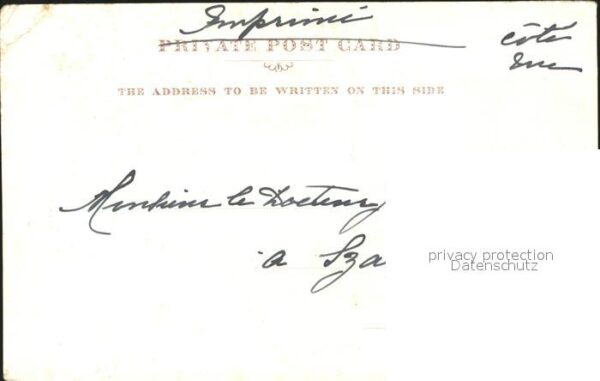 Imprimé
PRIVATE POST CARD
côte
THE ADDRESS TO BE WRITTEN ON THIS SIDE
Monsieur le Docteur
a Sza
privacy protection
Datenschutz